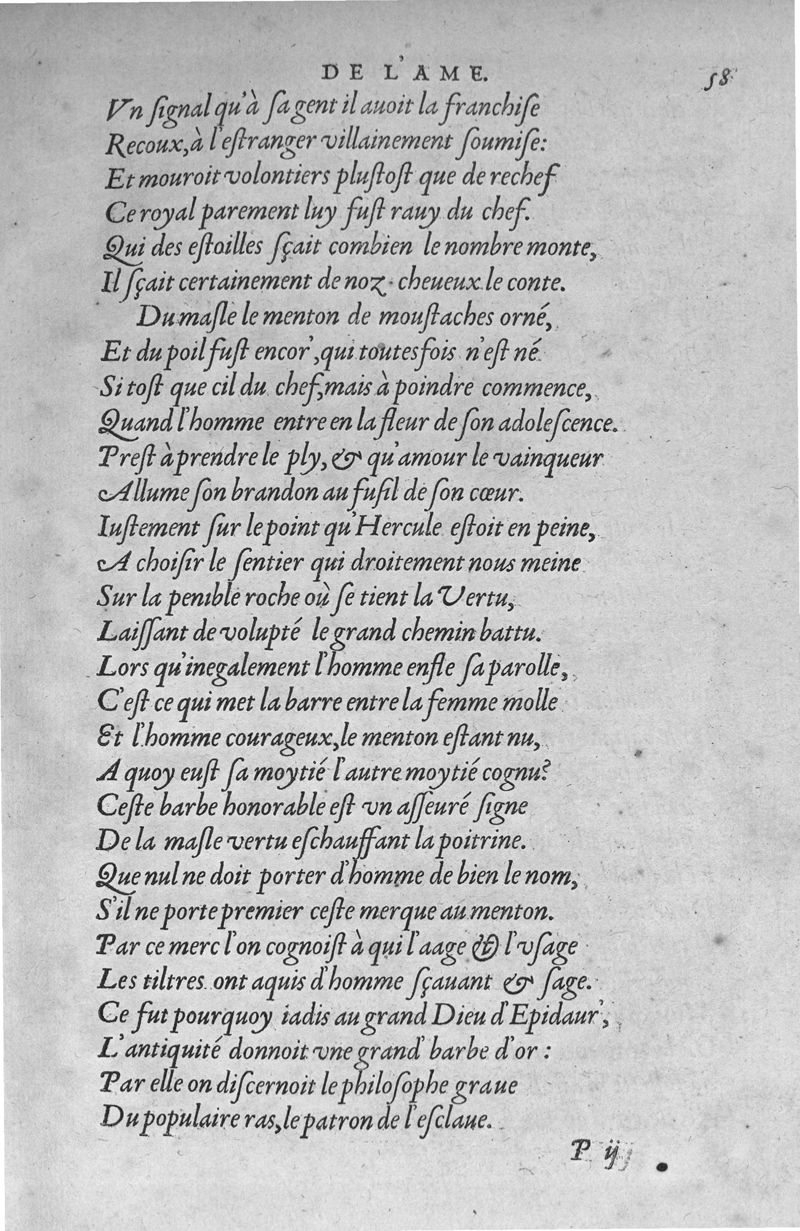 DE L'AME. 58
Vn ſignal qu'à ſa gent il auoit la franchiſe
Recoux, à l'eſtranger villainement ſoumiſe:
Et mouroit volontiers pluſtoſt que de rechef
Ce royal parement luy fuſt rauy du chef.
Qui des eſtoilles ſçait combien le nombre monte,
Il ſçait certainement de noz cheueux le conte.
Du maſle le menton de mouſtaches orné,
Et du poil fuſt encor', qui toutesfois n'eſt né
Si toſt que cil du chef, mais à poindre commence,
Quand l'homme entre en la fleur de ſon adoleſcence.
Preſt à prendre le ply, & qu'amour le vainqueur
Allume ſon brandon au fuſil de ſon cœur.
Iuſtement ſur le point qu'Hercule eſtoit en peine,
A choiſir le ſentier qui droitement nous meine
Sur la penible roche où ſe tient la Vertu,
Laiſſant de volupté le grand chemin battu.
Lors qu'inegalement l'homme enfle ſa parolle,
C'eſt ce qui met la barre entre la femme molle
Et l'homme courageux, le menton eſtant nu,
A quoy euſt ſa moytié l'autre moytié cognu?
Ceſte barbe honorable eſt vn aſſeuré ſigne
De la maſle vertu eſchauffant la poitrine.
Que nul ne doit porter d'homme de bien le nom,
S'il ne porte premier ceſte merque au menton.
Par ce merc l'on cognoiſt à qui l'aage & l'vſage
Les tiltres ont aquis d'homme ſçauant & ſage.
Ce fut pourquoy iadis au grand Dieu d'Epidaur',
L'antiquité donnoit vne grand' barbe d'or:
Par elle on diſcernoit le philoſophe graue
Du populaire ras, le patron de l'eſclaue.
P ij